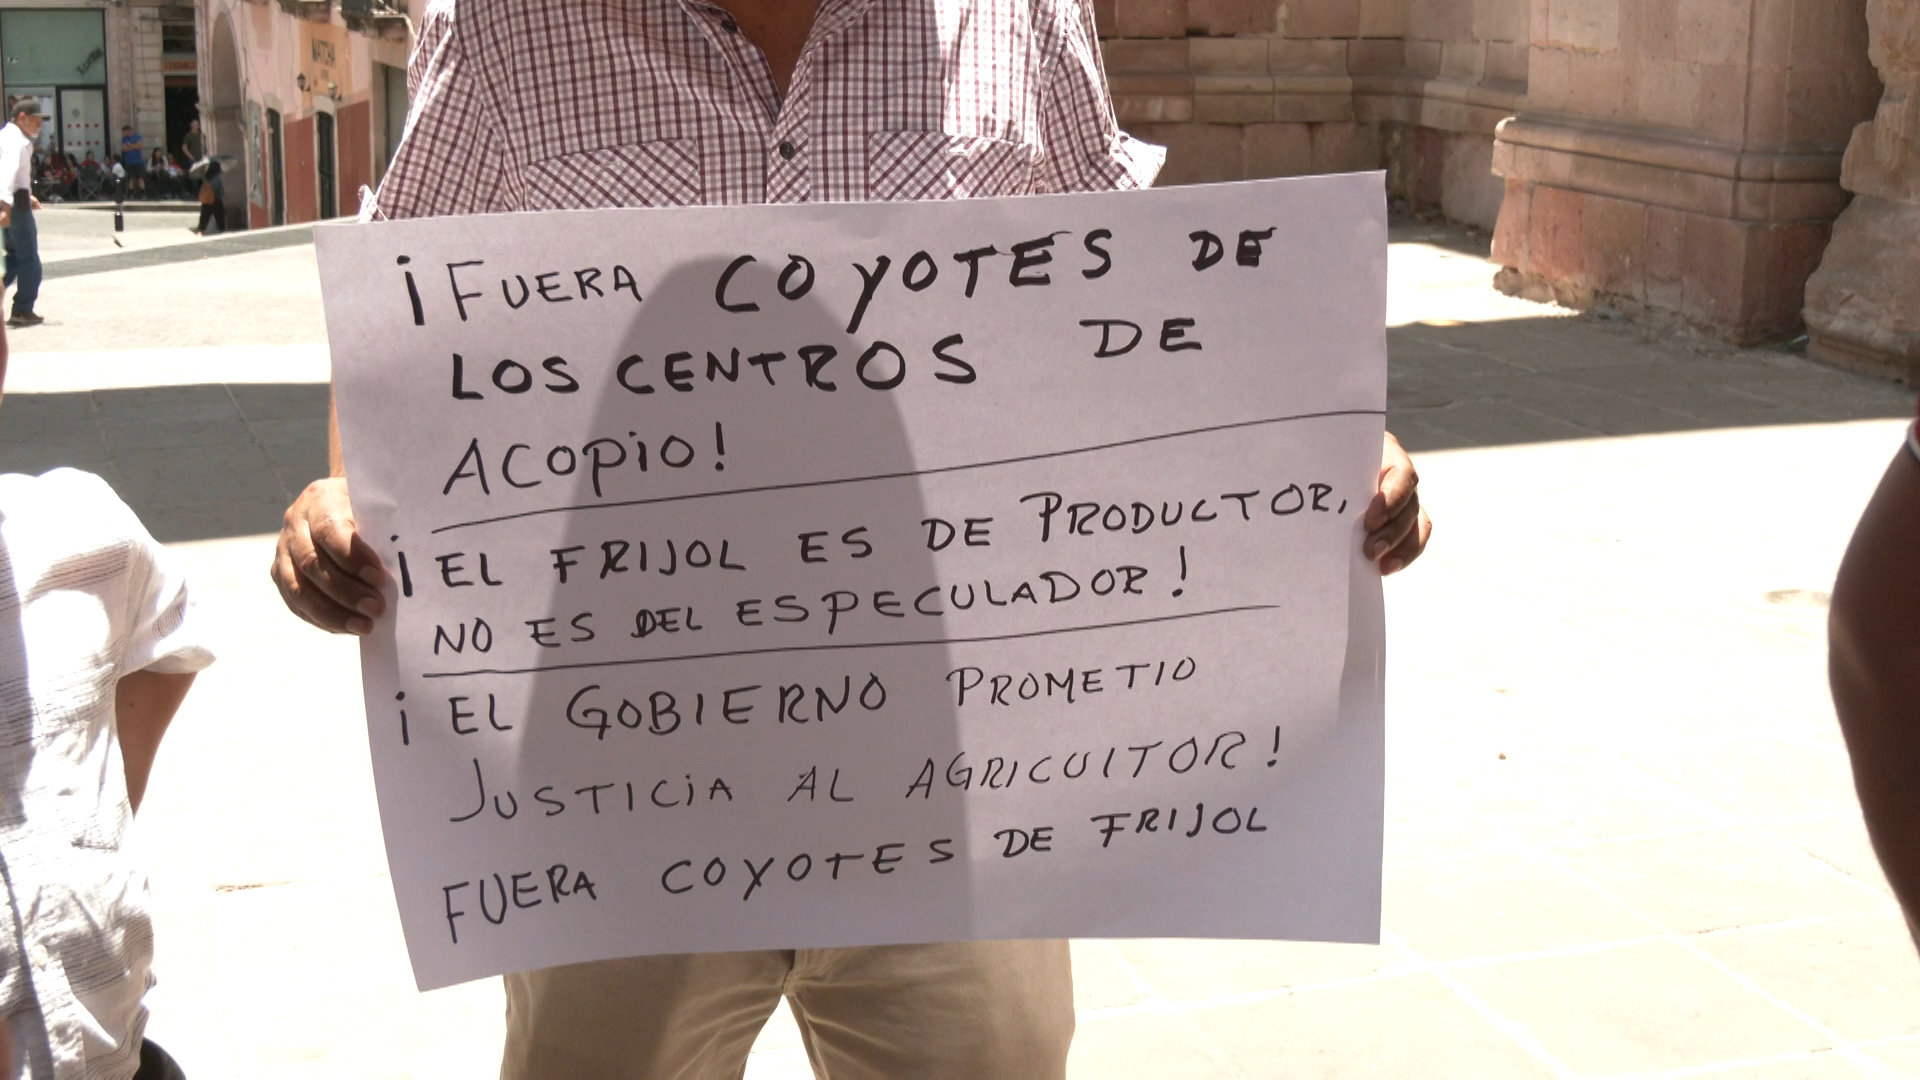 MATCHA
¡FUERA COYOTES DE
LOS CENTROS DE
ACOPIO!
¡EL FRIJOL ES DE PRODUCTOR,
NO ES DEL ESPECULADOR!
¡EL GOBIERNO PROMETIO
JUSTICIA AL AGRICULTOR!
FUERA COYOTES DE FRIJOL